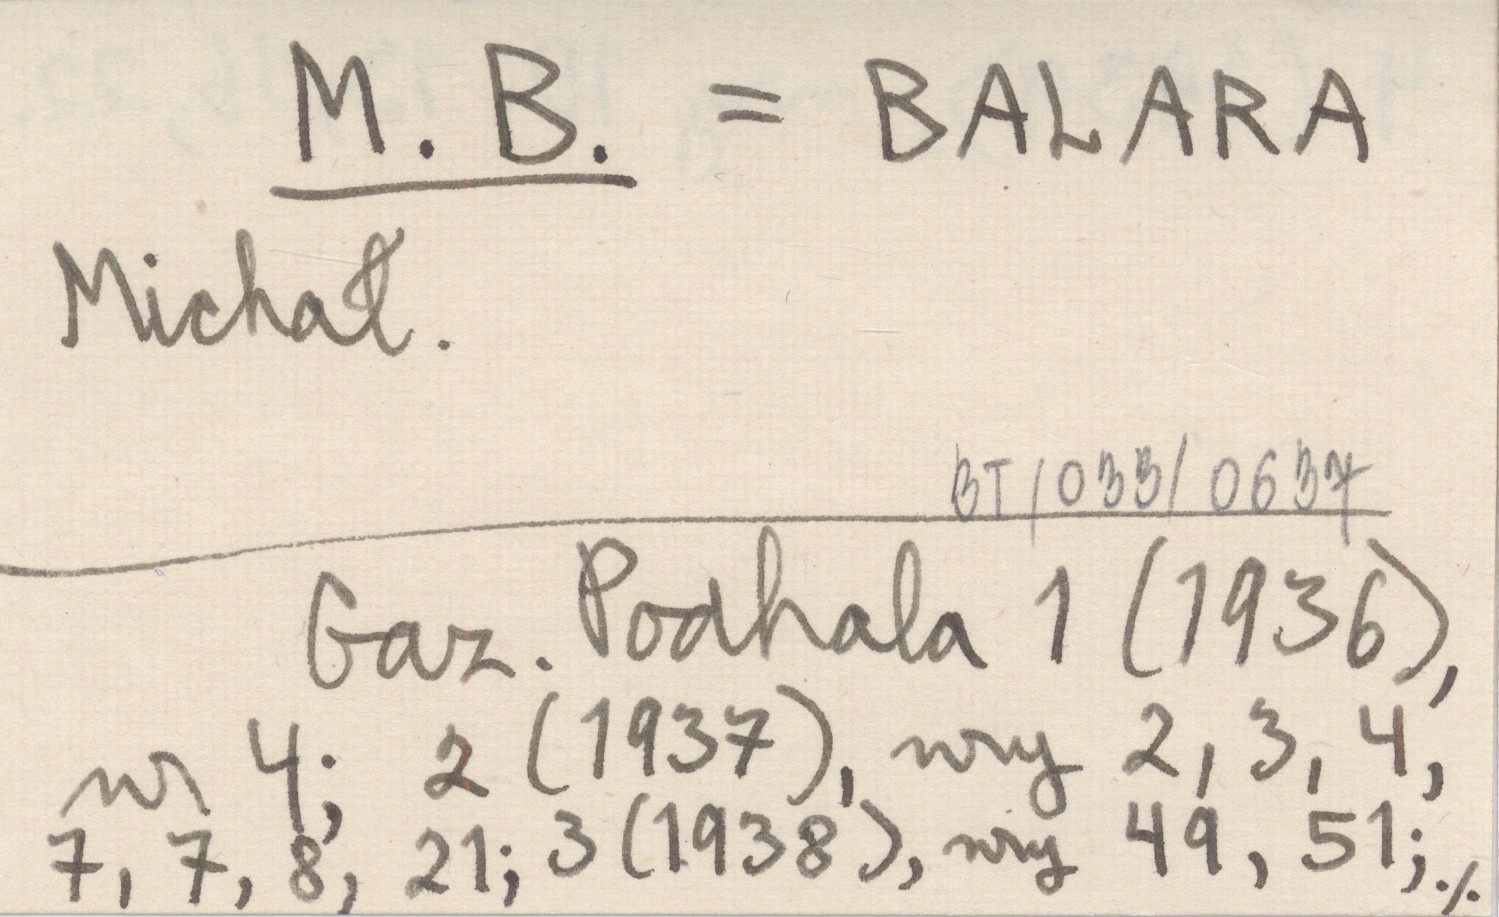 M. B. = BALARA
Michał.
BT/033/0637
Gaz. Podhala 1 (1936),
nr 4; 2 (1937), nry 2, 3, 4,
7, 7, 8, 21; 3 (1938), nry 49, 51; ./.